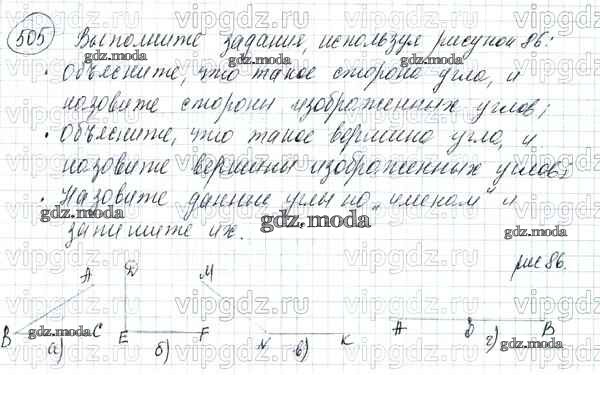 505 Выполните задания, используя рисунок 86:
• Объясните, что такое сторона угла, и
назовите стороны изображенных углов;
• Объясните, что такое вершина угла, и
назовите вершины изображенных углов;
• Назовите данные углы по „именам" и
запишите их.
рис 86.
A D M
B C E F N K A B
а) б) в) г)
vipgdz.ru
gdz.moda